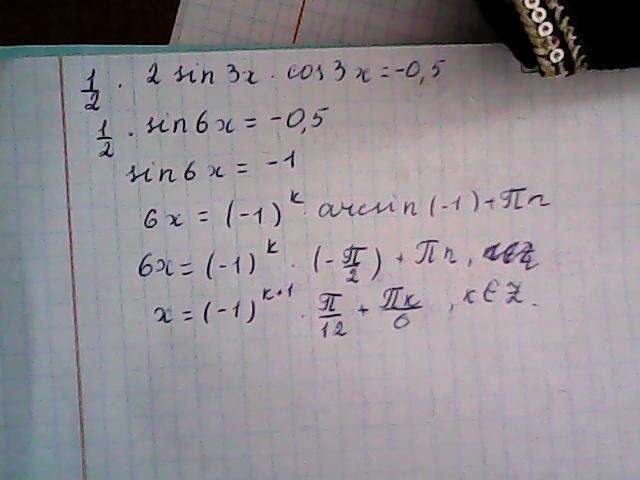 1/2 · 2 sin 3x · cos 3x = -0,5
1/2 · sin 6x = -0,5
sin 6x = -1
6x = (-1)^k · arcsin (-1) + Πn
6x = (-1)^k · (-Π/2) + Πn,
x = (-1)^(k+1) · Π/12 + Πk/6, k ∈ Z.